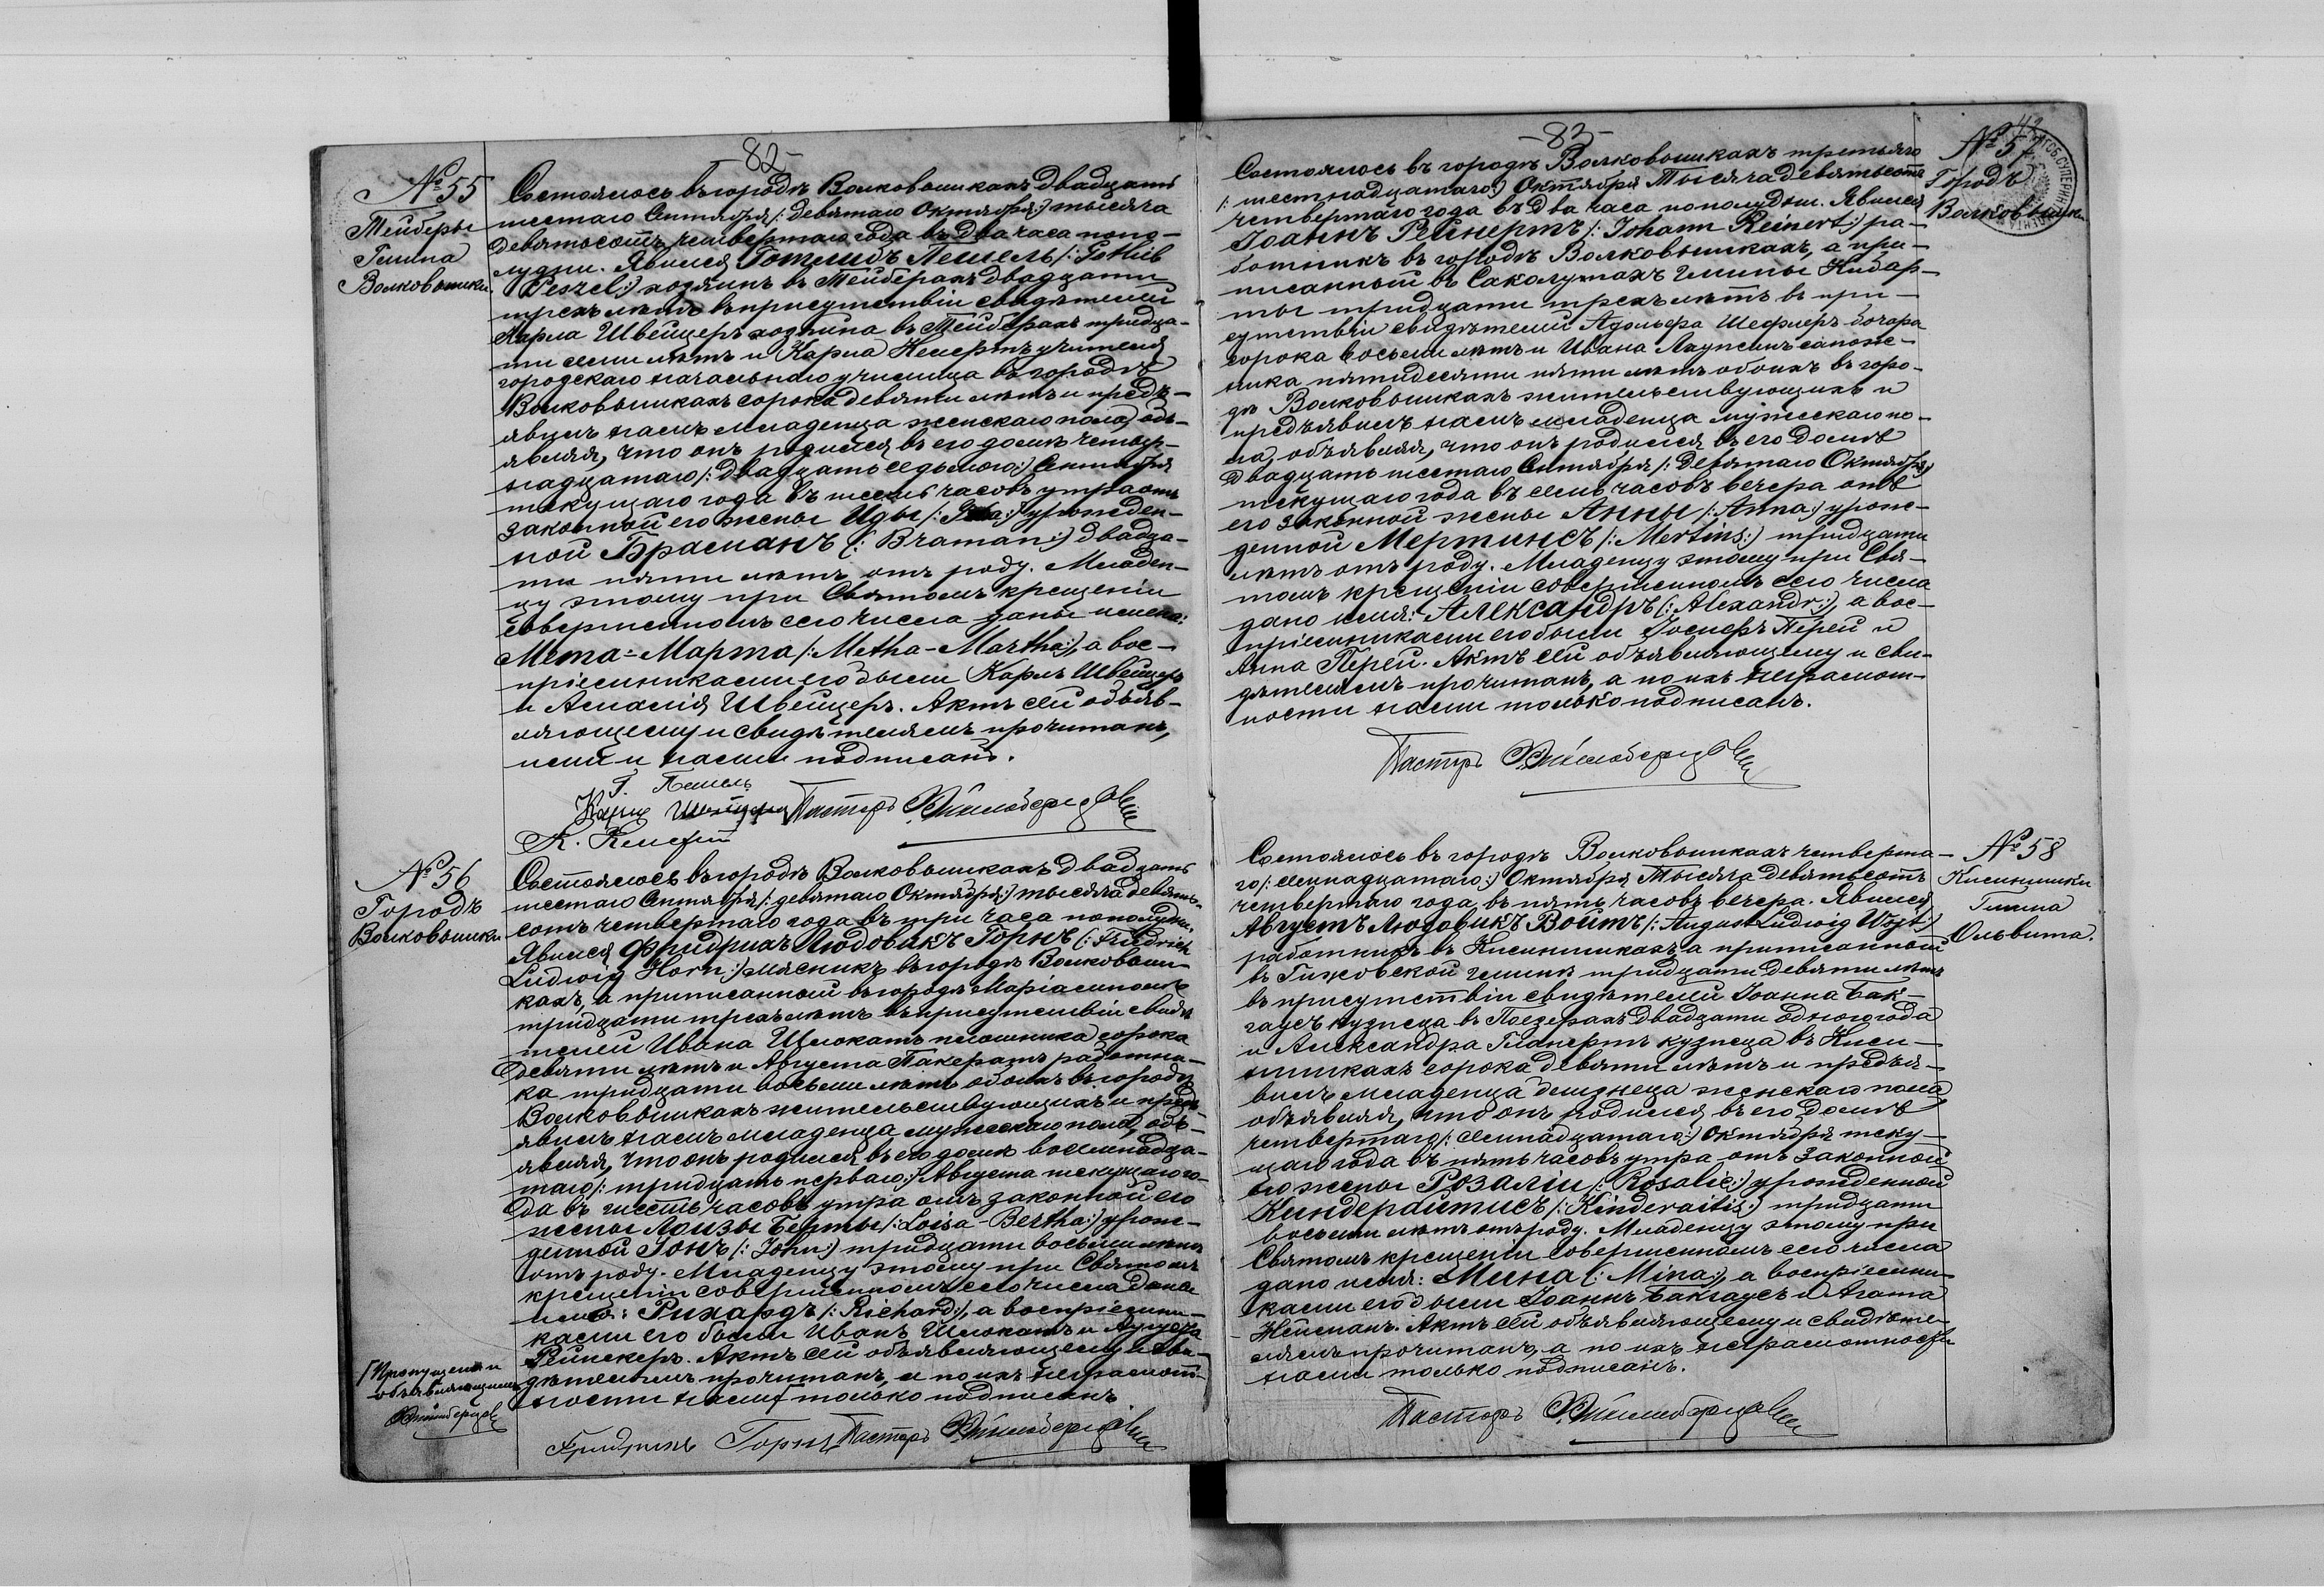 -82-
№ 55
Тейберы
Гмина
Волковышки
Состоялось въ городѣ Волковышкахъ двадцать
шестаго Сентября /: девятаго Октября :/ тысяча
девятьсотъ четвертаго года въ два часа попо-
лудни. Явился Готлибъ Пешель /: Gotlieb
Peszel :/ хозяинъ в Тейберахъ двадцати
трехъ лѣтъ въ присутствіи свидѣтелей
Карла Швейцеръ хозяина въ Тейберахъ тридца-
ти семи лѣтъ и Карла учителя
городскаго начальнаго училища въ городѣ
Волковышкахъ сорока девяти лѣтъ и предъ-
явилъ намъ младенца женскаго пола, объ-
являя, что онъ родился въ его домѣ четыр-
надцатаго /: двадцать седьмого :/ Сентября
текущаго года въ часовъ утра отъ
законной его жены Иды /: :/ урожден-
ной Браманъ /: Braman :/ двадца-
ти пяти лѣтъ отъ роду. Младен-
цу этому при Святомъ крещеніи
совершенномъ сего числа даны имена:
Мета-Марта /: Metha-Martha :/, а вос-
пріемниками его были Карлъ Швейцеръ
и Амалія Швейцеръ. Актъ сей объяв-
ляющему и свидѣтелямъ прочитанъ,
ими и нами подписанъ.
Г. Пешель
Карлъ Швейцеръ Пасторъ
К.
№ 56
Городъ
Волковышки
Состоялось въ городѣ Волковышкахъ двадцать
шестаго Сентября /: девятаго Октября :/ тысяча девять-
сотъ четвертаго года въ три часа пополудни.
Явился Фридрихъ Людовикъ Горнъ /: Friedrich
Ludwig Horn :/ мясникъ въ городѣ Волковыш-
кахъ, а приписанный въ городѣ Маріамполѣ
тридцати трехъ лѣтъ въ присутствіи свидѣ-
телей Ивана Шлокатъ сорока
девяти лѣтъ и Августа Пакератъ работни-
ка тридцати восьми лѣтъ обоихъ въ городѣ
Волковышкахъ жительствующихъ и предъ-
явилъ намъ младенца мужескаго пола, объ-
являя, что онъ родился въ его домѣ восемнадца-
таго /: тридцать перваго :/ Августа текущаго го-
да въ шесть часовъ утра отъ законной его
жены Лоизы Берты /: Loisa-Bertha :/ урож-
денной Іонъ /: John :/ тридцати восьми лѣтъ
отъ роду. Младенцу этому при Святомъ
крещеніи совершенномъ сего числа дано
имя: Рихардъ /: Richard :/, а воспріемни-
ками его были Иванъ Шлокатъ и Августа
Рейнекеръ. Актъ сей объявляющему и сви-
дѣтелямъ прочитанъ, а по ихъ неграмот-
ности нами только подписанъ
/ Пропущенъ и
объявляющимъ
Фридрихъ Горнъ Пасторъ
-83-
№ 57
Городъ
Волковышки
Состоялось въ городѣ Волковышкахъ третьяго
/: шестнадцатаго :/ Октября Тысяча девятьсотъ
четвертаго года въ два часа пополудни. Явился
Іоаннъ Рейнертъ /: Johann Reinert :/ ра-
ботникъ въ городѣ Волковышкахъ, а при-
писанный въ Саколупахъ Гмины Кибар-
ты тридцати трехъ лѣтъ въ при-
сутствіи свидѣтелей Адольфа Шефлеръ бочара
сорока восьми лѣтъ и Ивана сапож-
ника пятидесяти пяти лѣтъ обоихъ въ горо-
дѣ Волковышкахъ жительствующихъ и
предъявилъ намъ младенца мужескаго по-
ла, объявляя, что онъ родился въ его домѣ
Двадцать шестаго Сентября /: Девятаго Октября :/
текущаго года въ семь часовъ вечера отъ
его законной жены Анны /: Anna :/ урож-
денной Мертинсъ /: Mertins :/ тридцати
лѣтъ отъ роду. Младенцу этому при Свя-
томъ крещеніи совершенномъ сего числа
дано имя: Александръ /: Alexandr :/, а вос-
пріемниками его были Перей и
Анна Перей. Актъ сей объявляющему и сви-
дѣтелямъ прочитанъ, а по ихъ неграмот-
ности нами только подписанъ.
Пасторъ
№ 58
Гмина
Ольвита.
Состоялось въ городѣ Волковышкахъ четверта-
го /: семнадцатаго :/ Октября Тысяча девятьсотъ
четвертаго года, въ пять часовъ вечера. Явился
Августъ Людовикъ Войтъ /: August Ludwig Wojt :/
работникъ въ а приписанный
въ гминѣ тридцати девяти лѣтъ
въ присутствіи свидѣтелей Іоанна Бак-
гаусъ кузнеца въ Поезерахъ двадцати одного года
и Александра кузнеца въ
сорока девяти лѣтъ и предъя-
вилъ младенца женскаго пола
объявляя, что онъ родился въ его домѣ
четвертаго /: семнадцатаго :/ Октября теку-
щаго года въ пять часовъ утра отъ законной
его жены Розаліи /: Rosalie :/ урожденной
Киндерайтисъ /: Kinderaitis :/ тридцати
восьми лѣтъ отъ роду. Младенцу этому при
Святомъ крещеніи совершенномъ сего числа
дано имя: Мина /: Mina :/, а воспріемни-
ками его были Іоаннъ Бакгаусъ и Агата
Нейманъ. Актъ сей объявляющему и свидѣте-
лямъ прочитанъ, а по ихъ неграмотности
нами только подписанъ.
Пасторъ